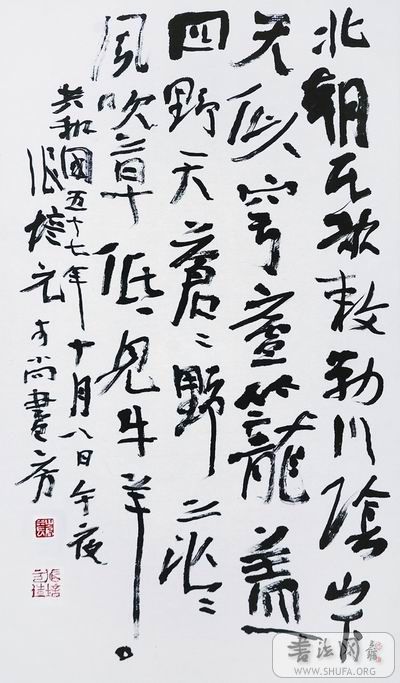 北朝民歌敕勒川陰山下
天似穹廬籠蓋
四野天蒼〻野茫〻
風吹草低見牛羊
共和國五十七年十月八日午夜
張培元于尚畫房
书法网
WWW.SHUFA.ORG